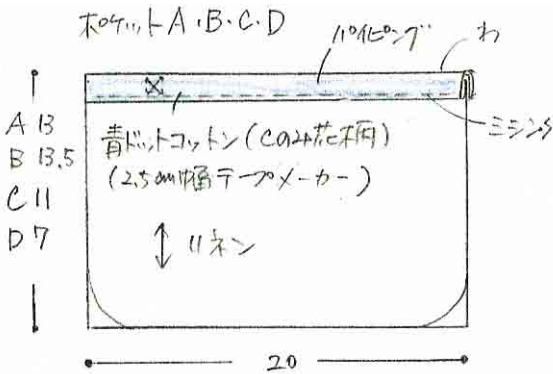 ポケットA・B・C・D
パイピング
わ
ミシンタ
A 13
B 13.5
C 11
D 7
青ドットコットン(Cのみ花柄)
(2.5cm幅テープメーカー)
リネン
20